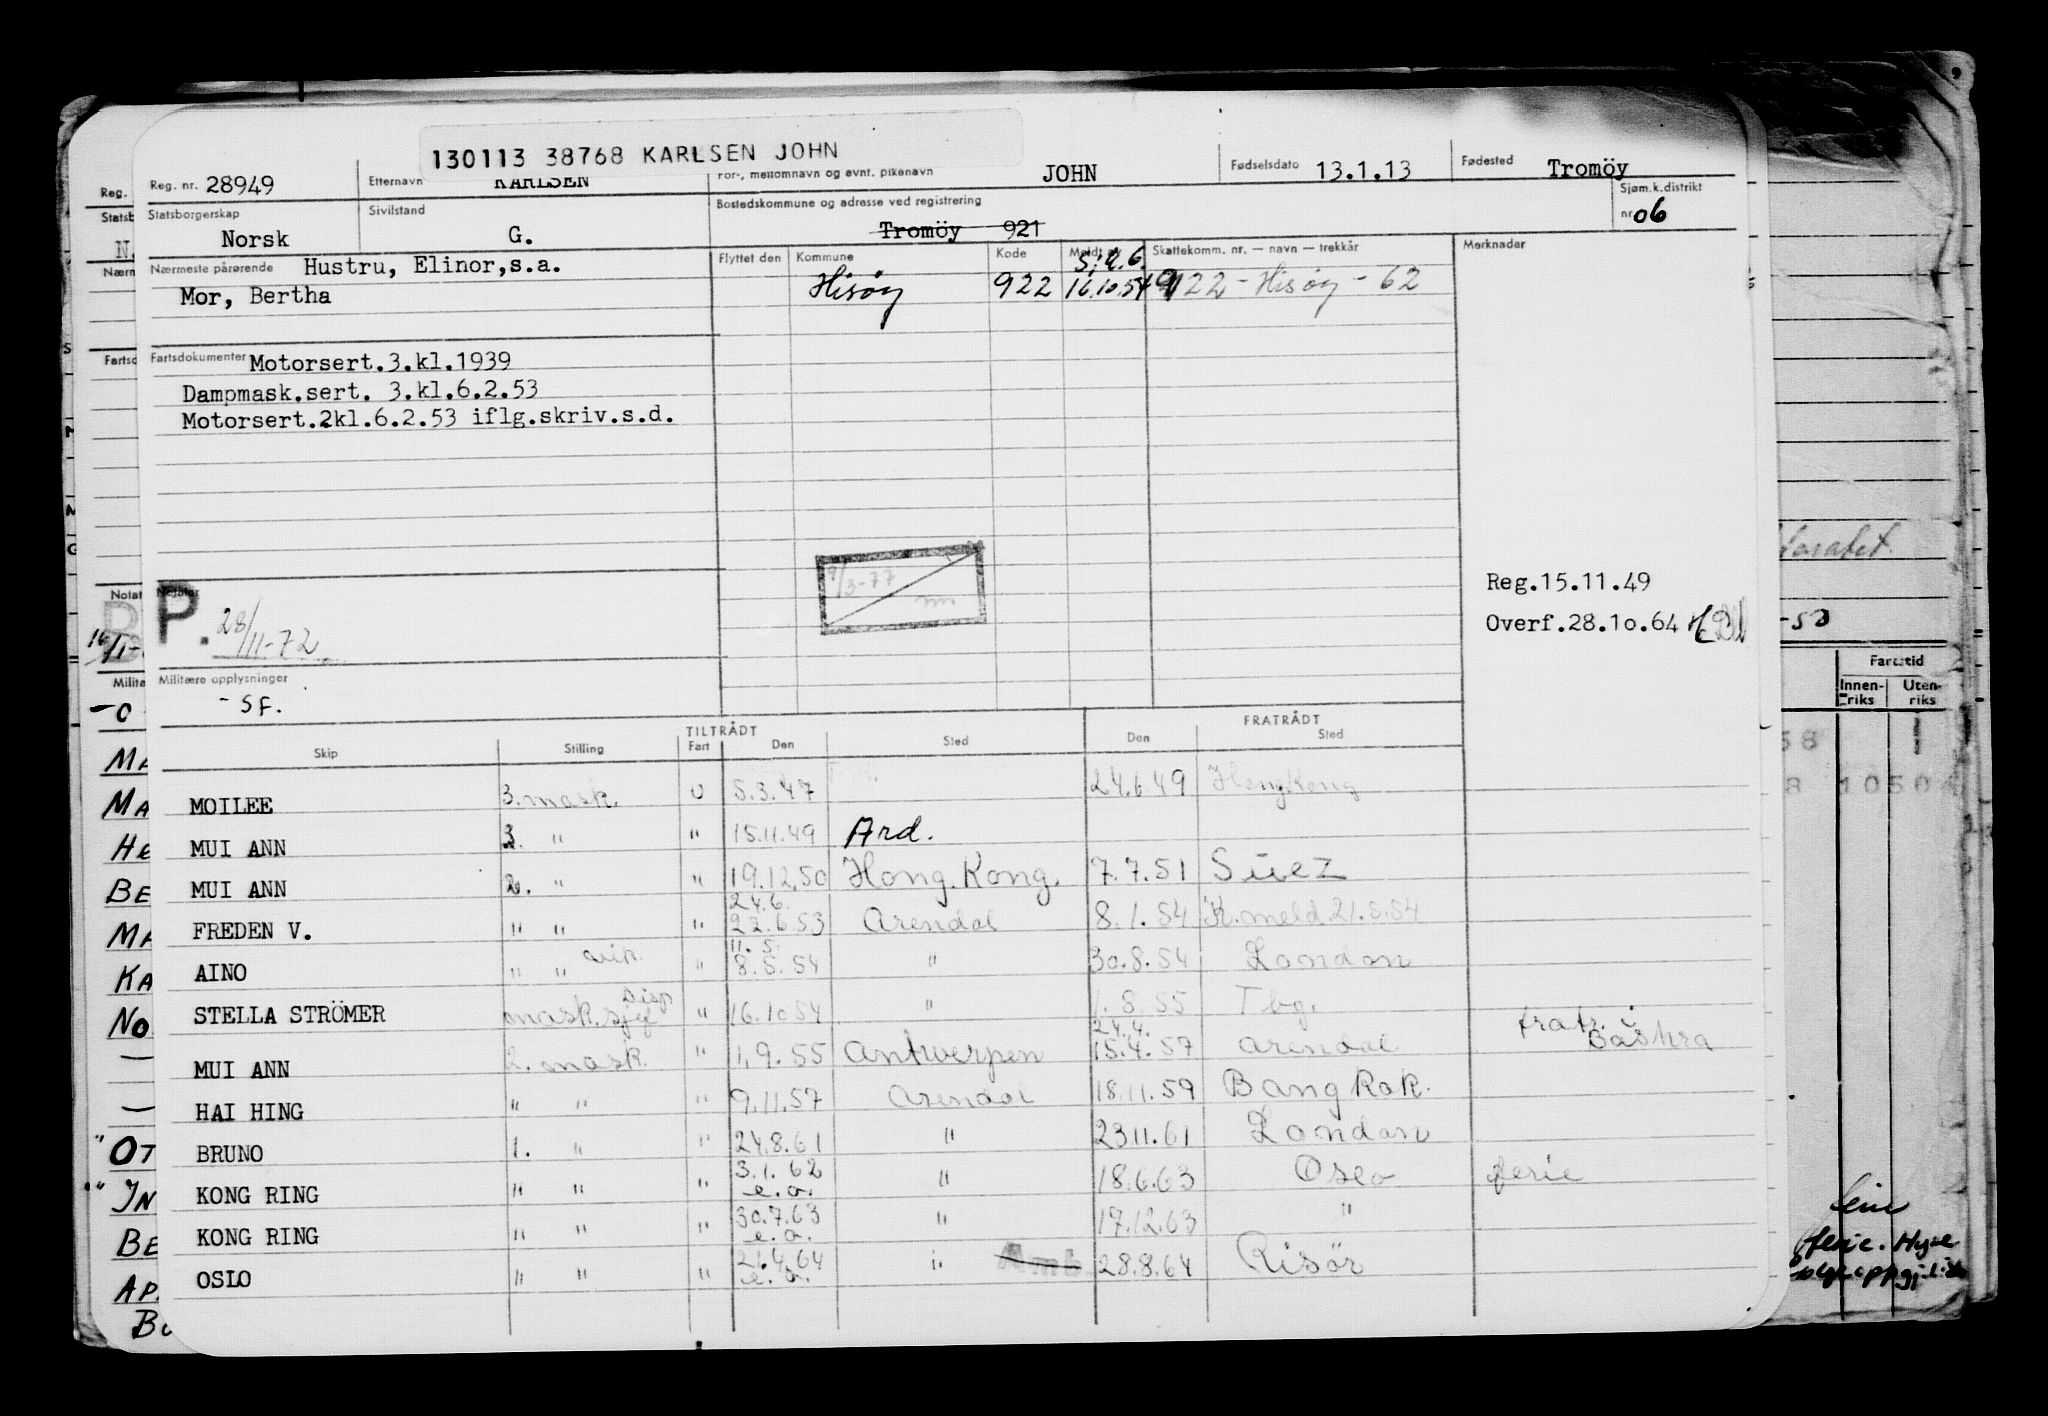 130113 38768 KARLSEN JOHN
Reg. nr. 28949 Etternavn KARLSEN For-, mellomnavn og evnt. pikenavn JOHN Fødselsdato 13.1.13 Fødested Tromöy
Statsborgerskap Norsk Sivilstand G. Bostedskommune og adresse ved registrering Tromöy 921 Sjøm.k.distrikt nr. 06
Nærmeste pårørende Hustru, Elinor,s.a.
Mor, Bertha
Flyttet den Kommune Kode Meldt Skattekomm. nr. — navn — trekkår Merknader
Hisöy 922 16.10.54 922 - Hisöy - 62
Fartsdokumenter Motorsert.3.kl.1939
Dampmask.sert. 3.kl.6.2.53
Motorsert.2kl.6.2.53 iflg.skriv.s.d.
9/3-77
Reg.15.11.49
Overf.28.10.64
Notater
P. 28/11-72
Militære opplysninger
- SF.
TILTRÅDT FRATRÅDT
Skip Stilling Fart Den Sted Den Sted
MOILEE 3. mask. U 5.3.47 24.6.49 HongKong
MUI ANN 2. " " 15.11.49 Ard.
MUI ANN 2. " " 19.12.50 Hong.Kong. 7.7.51 Suez
24.6.
FREDEN V. " " " 22.6.53 Arendal 8.1.54 K.meld.21.5.54
11.5.
AINO " " " 8.5.54 " 30.8.54 London
disp
STELLA STRÖMER mask.sjef " 16.10 54 " 1.8.55 Tbg.
24.4.
MUI ANN 2. mask. " 1.9.55 Antwerpen 15.4.57 Arendal fratr. i Bashra
HAI HING " " " 9.11.57 Arendal 18.11.59 Bangkok.
BRUNO 1. " " 24.8.61 " 23.11.61 London
KONG RING " " " 3.1.62 e.o. " 18.6.63 Oslo ferie
KONG RING " " " 30.7.63 e.o. " 17.12.63 "
OSLO " " " 21.4.64 e.o. " 28.8.64 Risör
Fartstid
Innenriks Utenriks